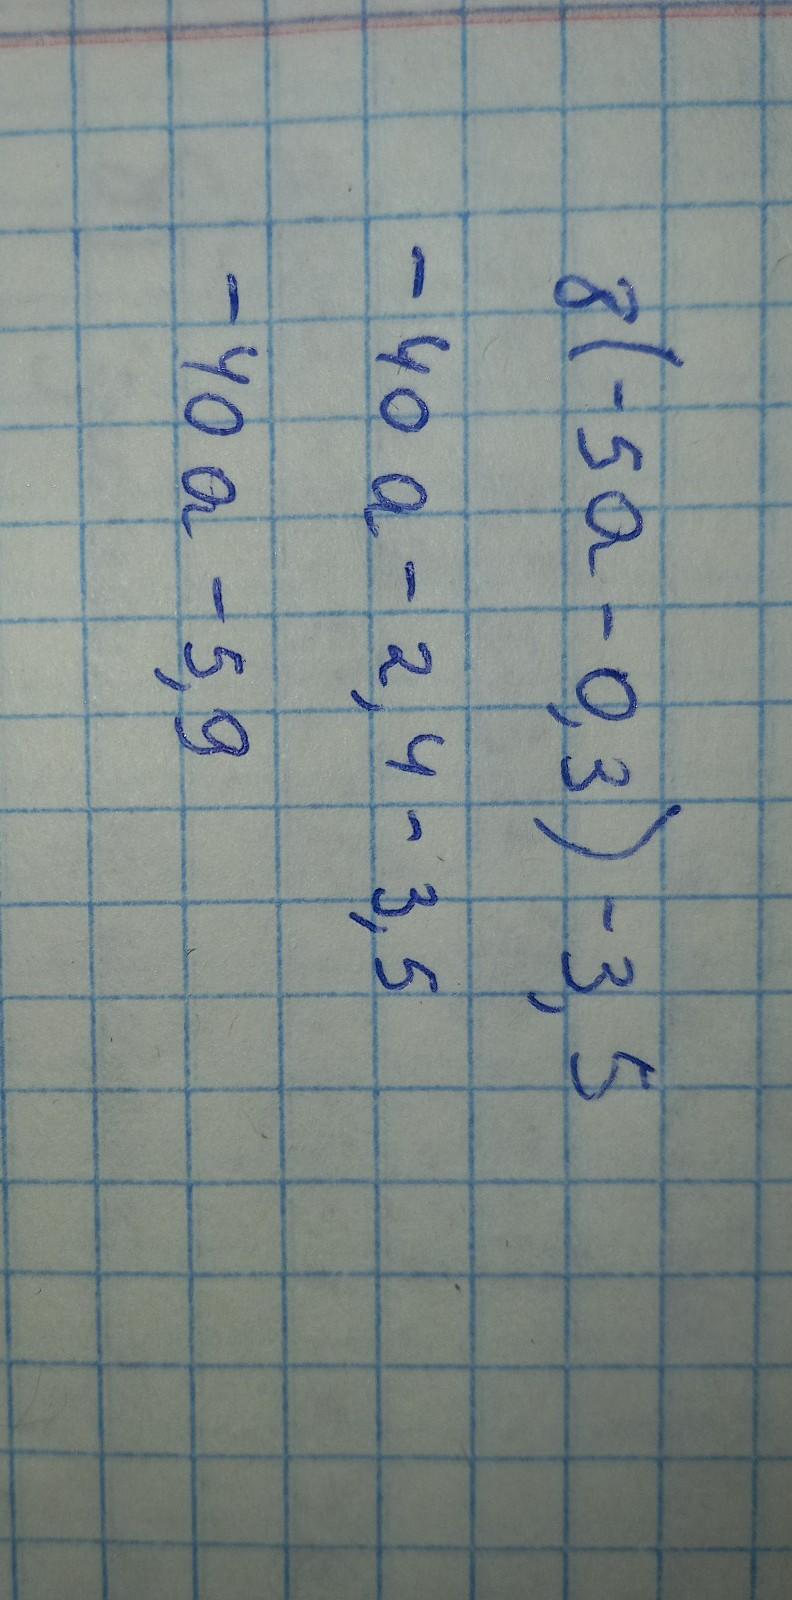 8(-5a-0,3)-3,5
-40a-2,4-3,5
-40a-5,9